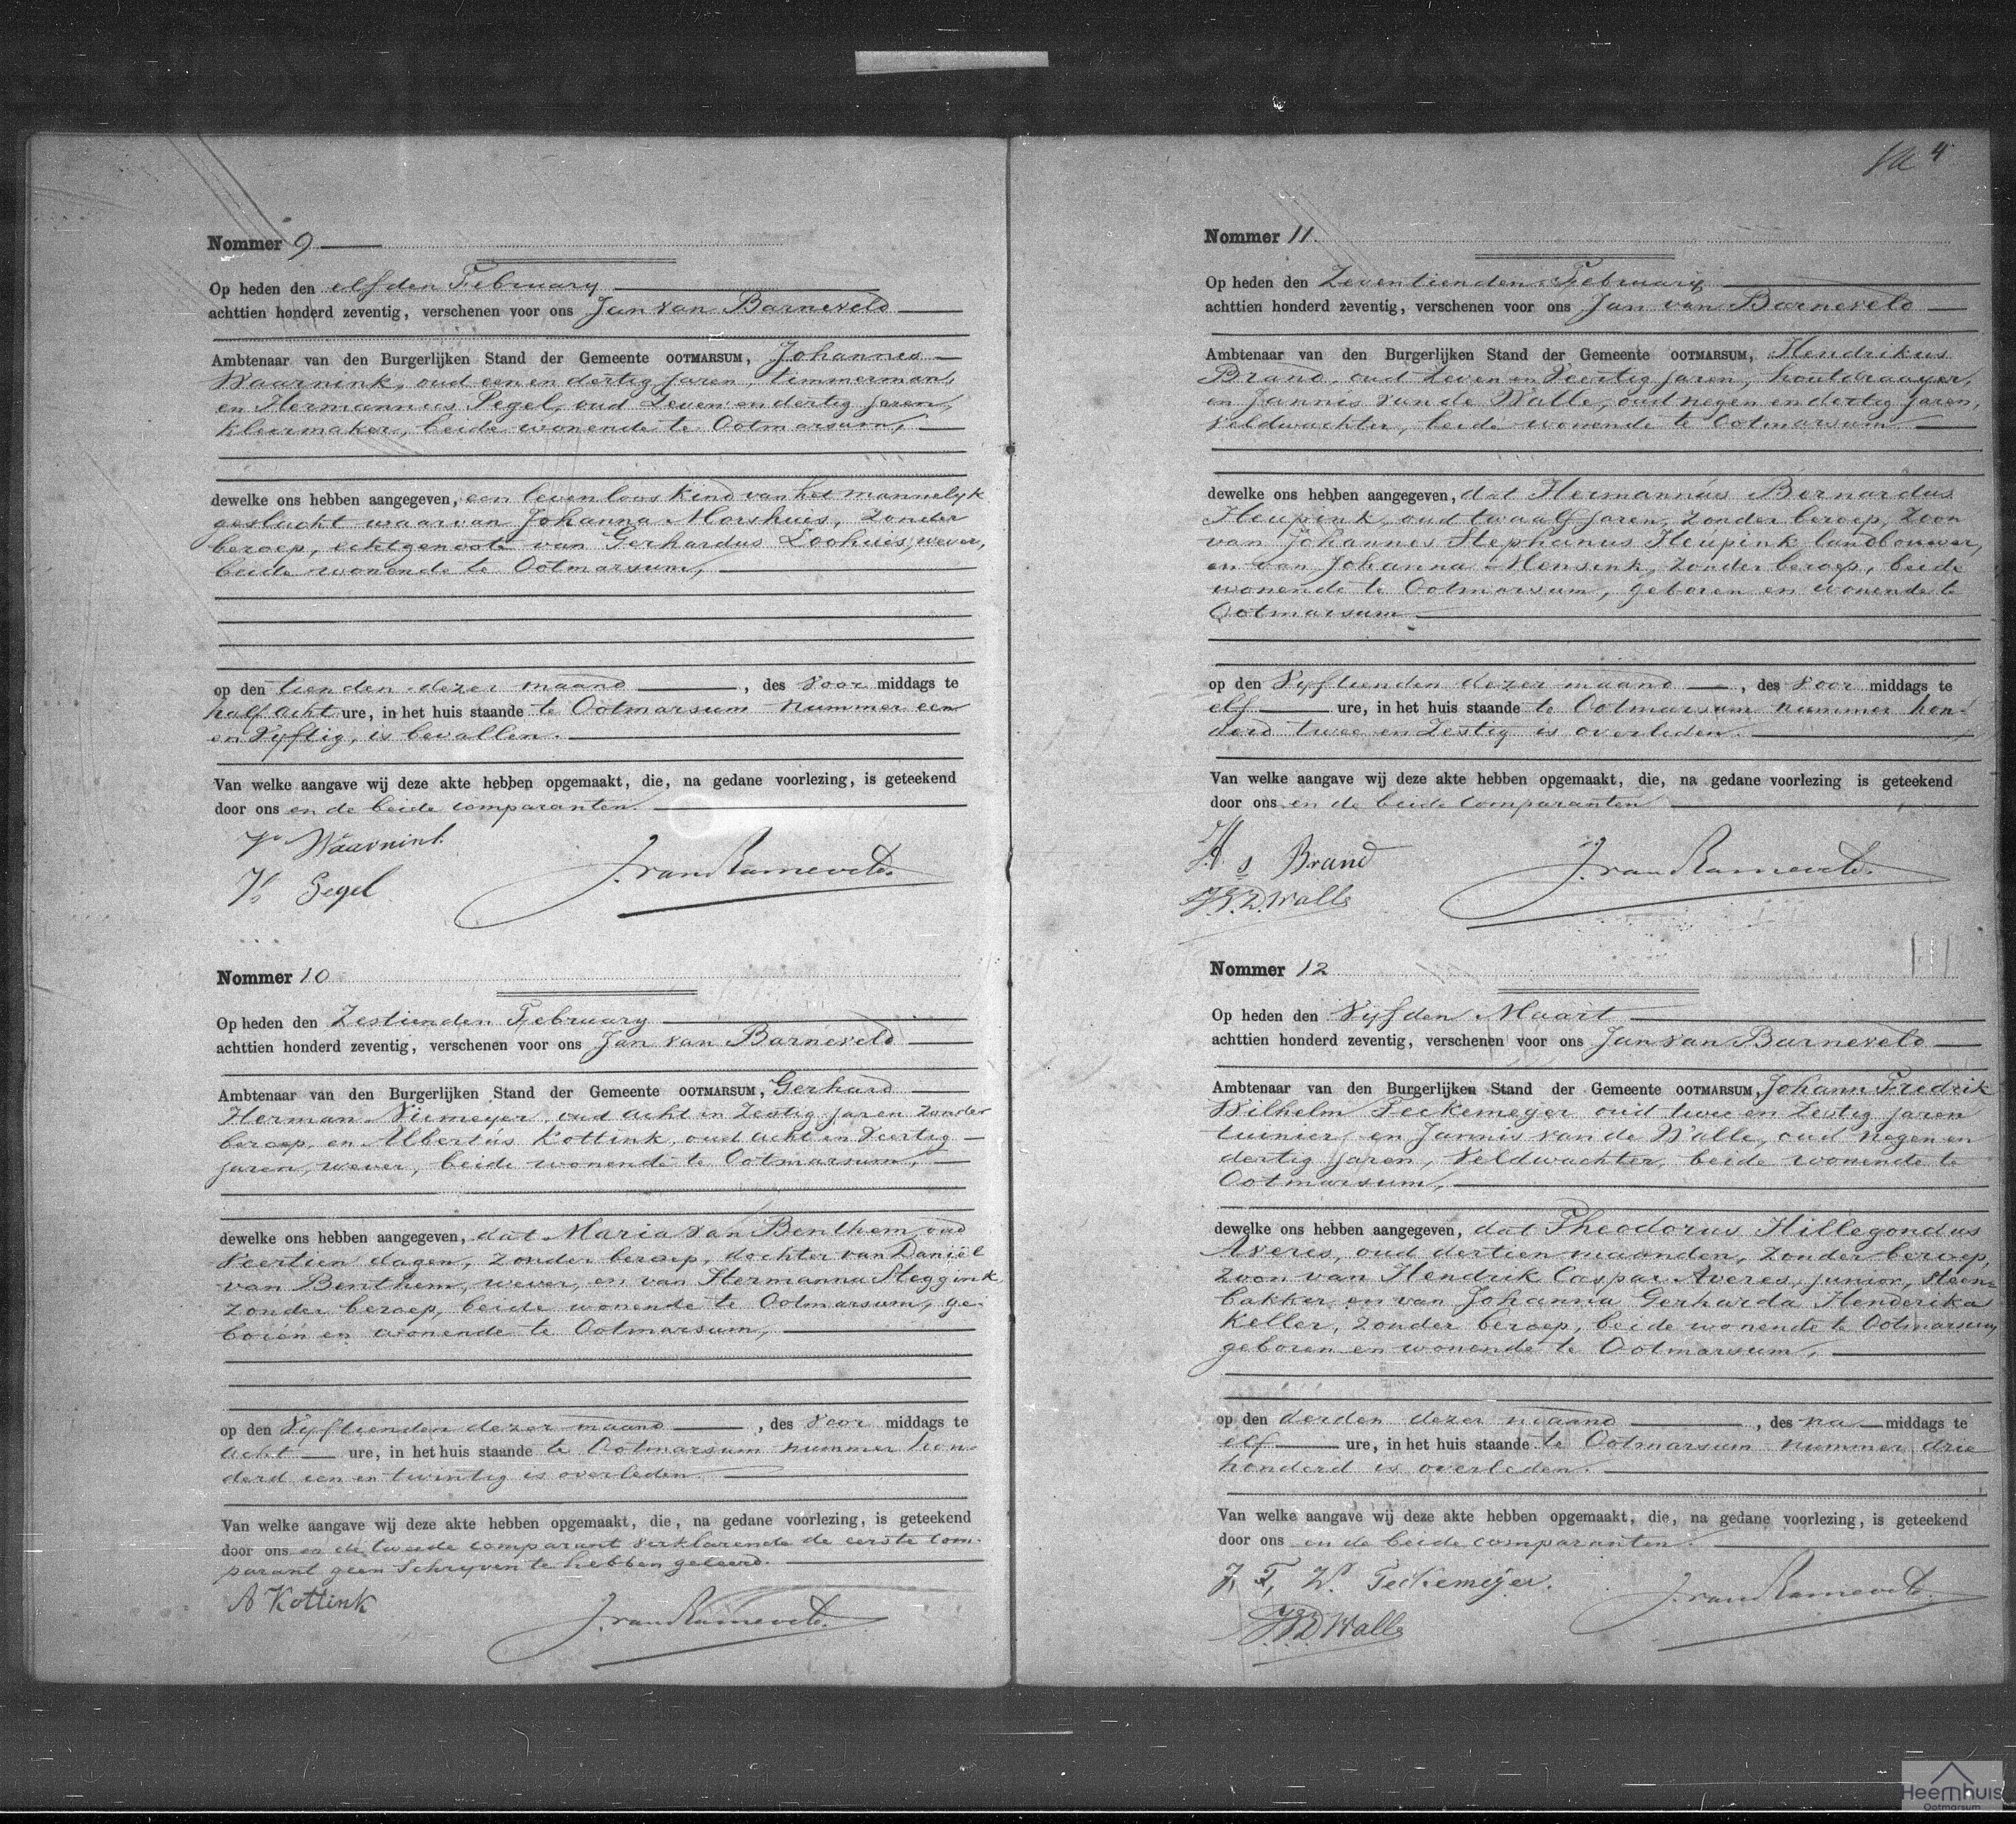 Nommer 9
Op heden den elfden February
achttien honderd zeventig, verschenen voor ons Jan van Barneveld
Ambtenaar van den Burgerlijken Stand der Gemeente OOTMARSUM, Johannes
Waarnink, oud een en dertig jaren, timmerman,
en Hermannus Segel, oud zeven en dertig jaren,
kleermaker, beide wonende te Ootmarsum,
dewelke ons hebben aangegeven, een levenloos kind van het mannelyk
geslacht waarvan Johanna Morshuis, zonder
beroep, echtgenoote van Gerhardus Loohuis, wever,
beide wonende te Ootmarsum,
op den tienden dezer maand, des voor middags te
half acht ure, in het huis staande te Ootmarsum nummer een
en vyftig, is bevallen.
Van welke aangave wij deze akte hebben opgemaakt, die, na gedane voorlezing, is geteekend
door ons en de beide comparanten.
Waarnink
Segel
J. van Barneveld.
Nommer 10
Op heden den Zestienden February
achttien honderd zeventig, verschenen voor ons Jan van Barneveld
Ambtenaar van den Burgerlijken Stand der Gemeente OOTMARSUM, Gerhard
Herman Niemeyer, oud acht en zestig jaren zonder
beroep, en Albertus Kottink, oud acht en veertig
jaren, wever, beide wonende te Ootmarsum,
dewelke ons hebben aangegeven, dat Maria van Benthem oud
veertien dagen, zonder beroep, dochter van Daniël
van Benthem, wever, en van Hermanna Steggink
zonder beroep, beide wonende te Ootmarsum, ge-
boren en wonende te Ootmarsum,
op den vyftienden dezer maand, des voor middags te
acht ure, in het huis staande te Ootmarsum nummer hon-
derd een en twintig is overleden.
Van welke aangave wij deze akte hebben opgemaakt, die, na gedane voorlezing, is geteekend
door ons en de tweede comparant verklarende de eerste com-
parant geen schryven te hebben geleerd.
A Kottink
J. van Barneveld.
4
Nommer 11.
Op heden den Zeventienden February
achttien honderd zeventig, verschenen voor ons Jan van Barneveld
Ambtenaar van den Burgerlijken Stand der Gemeente OOTMARSUM, Hendrikus
Brand, oud zeven en veertig jaren, houtdraayer,
en Jannis van de Walle, oud negen en dertig jaren,
veldwachter, beide wonende te Ootmarsum
dewelke ons hebben aangegeven, dat Hermannus Bernardus
Heupink, oud twaalf jaren, zonder beroep, zoon
van Johannes Stephanus Heupink landbouwer,
en van Johanna Mensink, zonder beroep, beide
wonende te Ootmarsum, geboren en wonende te
Ootmarsum
op den vyftienden dezer maand, des voor middags te
elf ure, in het huis staande te Ootmarsum nummer hon-
derd twee en zestig is overleden.
Van welke aangave wij deze akte hebben opgemaakt, die, na gedane voorlezing is geteekend
door ons en de beide comparanten
H s Brand
J. V. D. Walle
J. van Barneveld.
Nommer 12
Op heden den vyfden Maart
achttien honderd zeventig, verschenen voor ons Jan van Barneveld
Ambtenaar van den Burgerlijken Stand der Gemeente OOTMARSUM, Johann Fredrik
Wilhelm Peckemeyer oud twee en zestig jaren
tuinier, en Jannis van de Walle, oud negen en
dertig jaren, veldwachter, beide wonende te
Ootmarsum,
dewelke ons hebben aangegeven, dat Theodorus Hillegondus
Averes, oud dertien maanden, zonder beroep,
zoon van Hendrik Caspar Averes, junior, steen-
bakker, en van Johanna Gerharda Henderika
Keller, zonder beroep, beide wonende te Ootmarsum,
geboren en wonende te Ootmarsum,
op den derden dezer maand, des na middags te
elf ure, in het huis staande te Ootmarsum nummer drie
honderd is overleden.
Van welke aangave wij deze akte hebben opgemaakt, die, na gedane voorlezing, is geteekend
door ons en de beide comparanten.
J. F. W. Peckemeyer.
J. V. D. Walle
J. van Barneveld.
Heemhuis
Ootmarsum